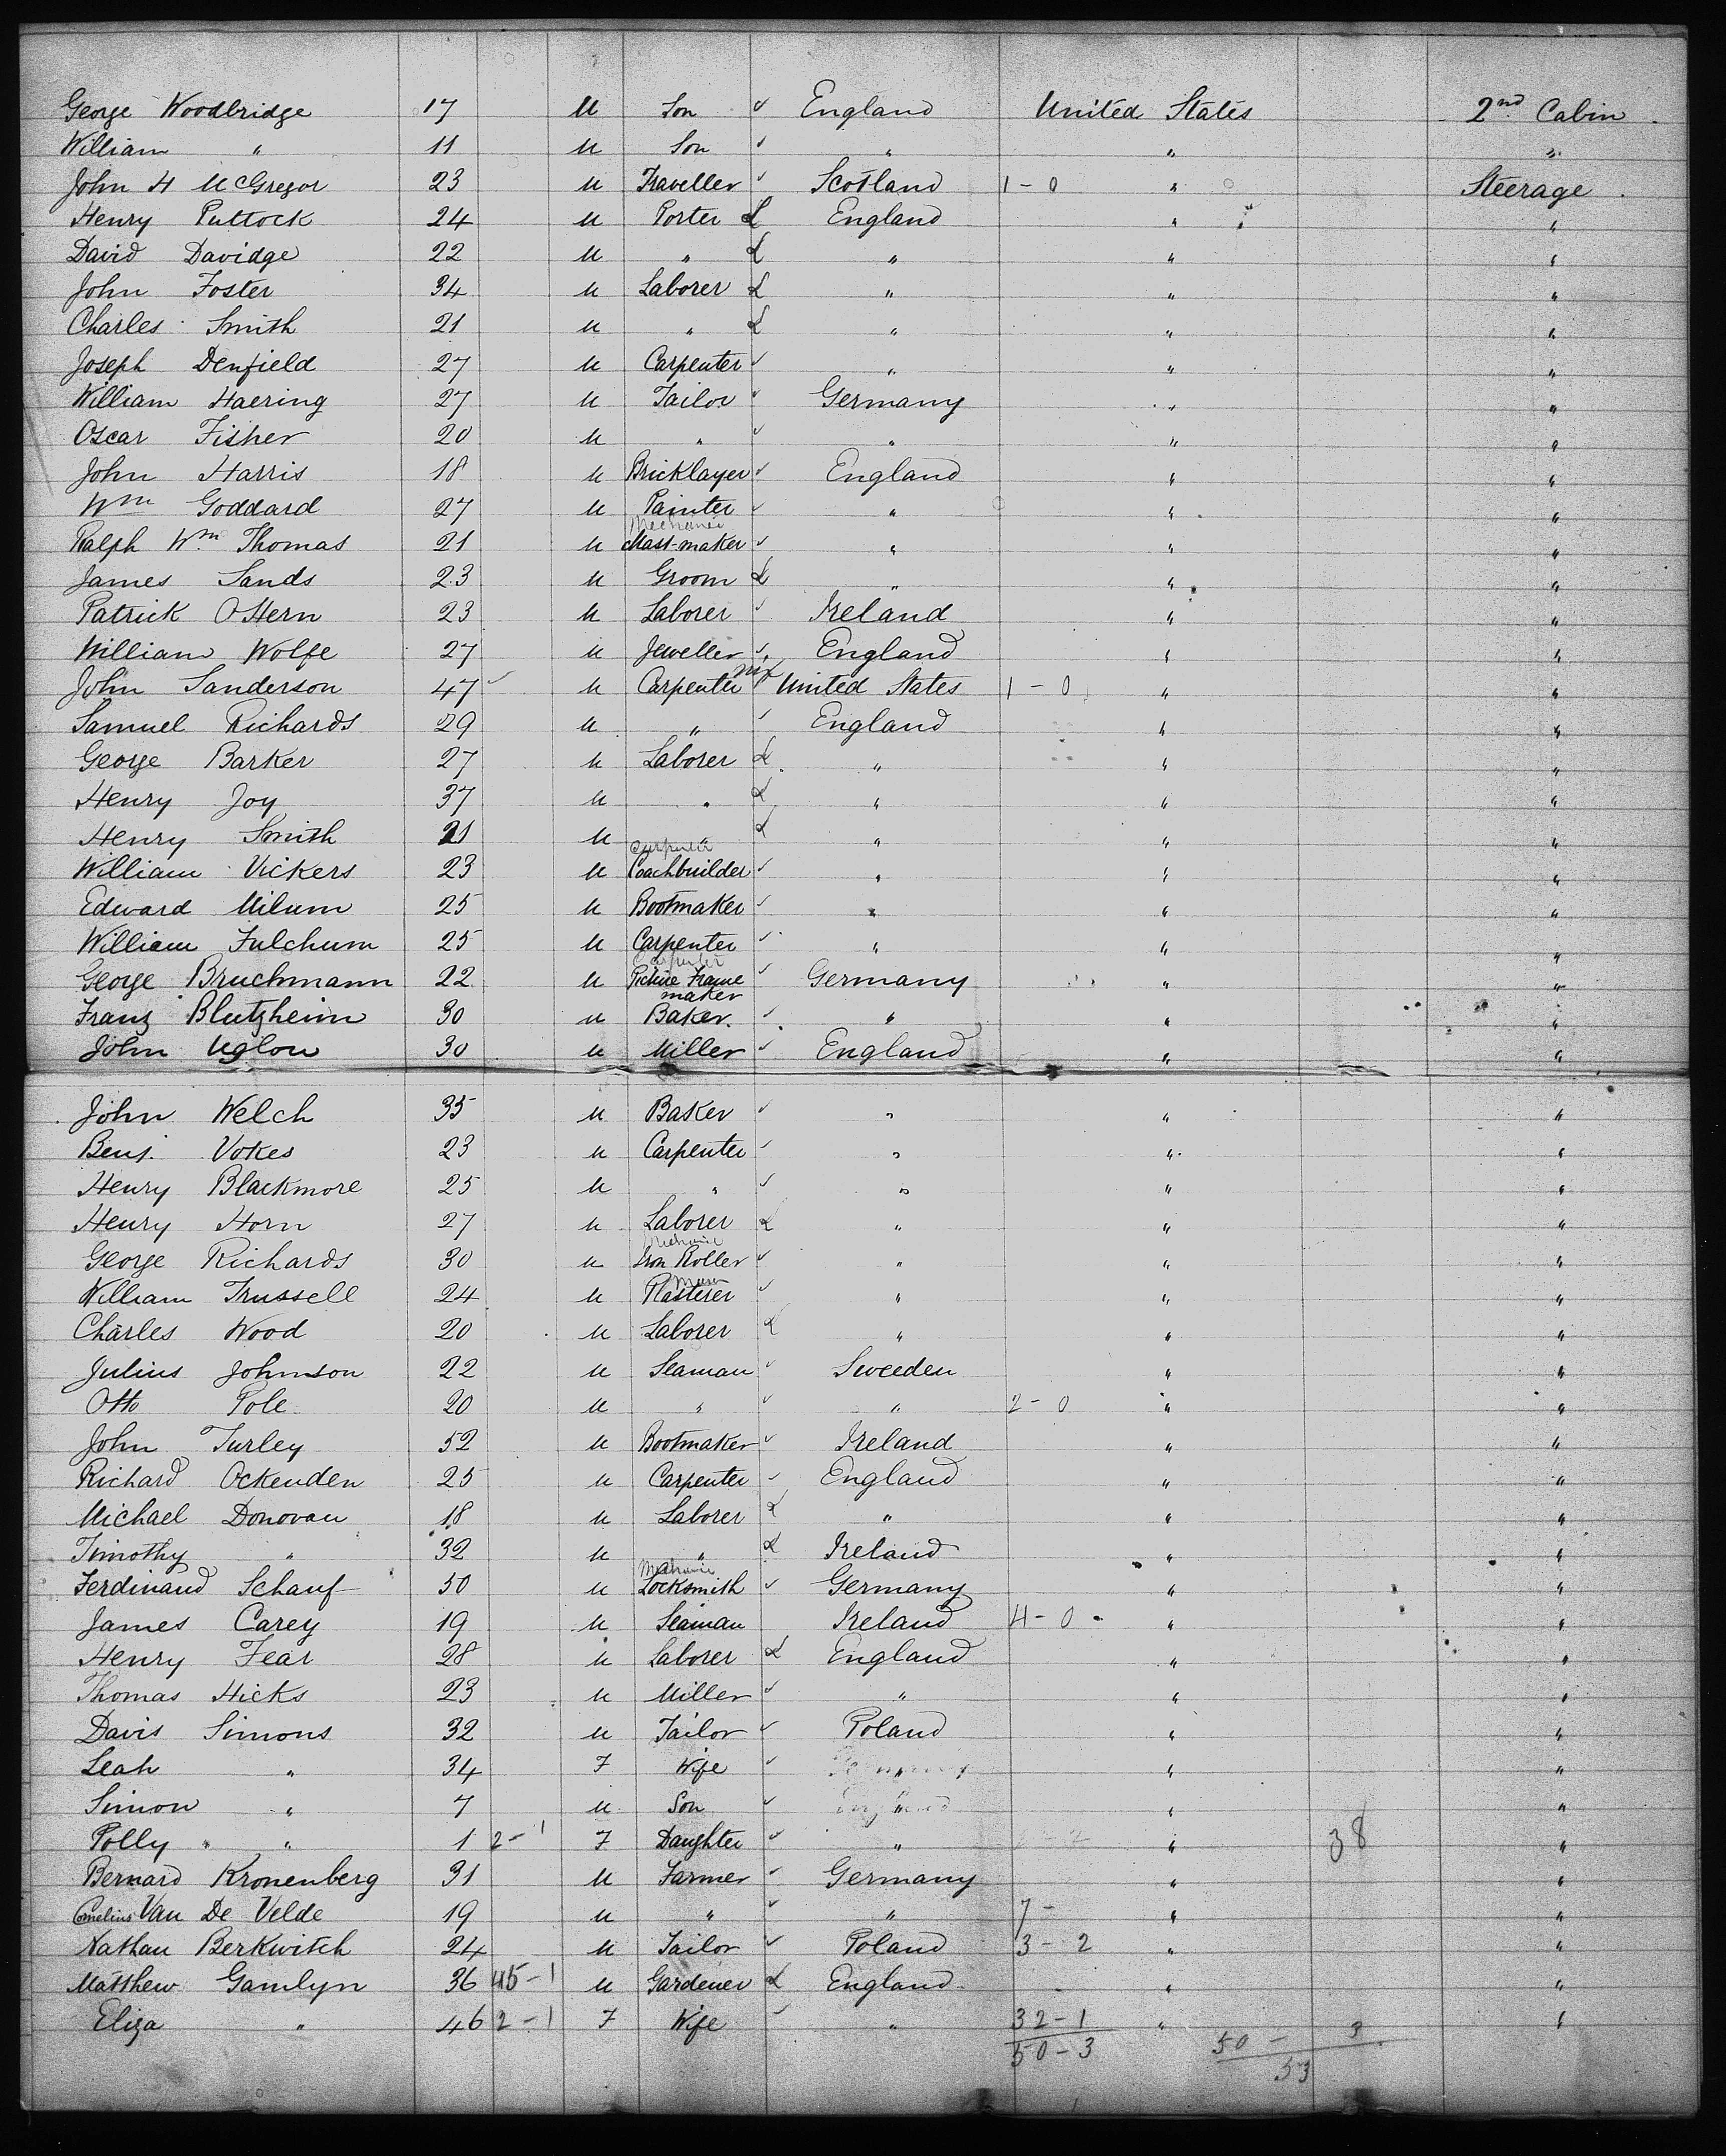 George Woodbridge 17 M Son ✓ England United States 2nd Cabin
William " 11 M Son ✓ " " "
John H McGregor 23 M Traveller ✓ Scotland 1-0 " Steerage
Henry Puttock 24 M Porter L England " "
David Davidge 22 M " L " " "
John Foster 34 M Laborer L " " "
Charles Smith 21 M " L " " "
Joseph Denfield 27 M Carpenter ✓ " " "
William Haering 27 M Tailor ✓ Germany " "
Oscar Fisher 20 M " ✓ " " "
John Harris 18 M Bricklayer ✓ England " "
Wm Goddard 27 M Painter ✓ " " "
Mechanic
Ralph Wm. Thomas 21 M Mast-maker ✓ " " "
James Sands 23 M Groom L " " "
Patrick OHern 23 M Laborer ✓ Ireland " "
William Wolfe 27 M Jeweller ✓ England " "
John Sanderson 47 ✓ M Carpenter United States 1-0 " "
Samuel Richards 29 M " ✓ England " "
George Barker 27 M Laborer L " " "
Henry Joy 37 M " L " " "
Henry Smith 21 M " L " " "
Carpenter
William Vickers 23 M Coachbuilder ✓ " " "
Edward Milum 25 M Bootmaker ✓ " " "
William Fulchum 25 M Carpenter ✓ " " "
Carpenter
George Bruchmann 22 M Picture Frame maker ✓ Germany " "
Franz Blutzheim 30 M Baker. ✓ " " "
John Uglow 30 M Miller ✓ England " "
John Welch 35 M Baker ✓ " " "
Benj. Vokes 23 M Carpenter ✓ " " "
Henry Blackmore 25 M " ✓ " " "
Henry Horn 27 M Laborer L " " "
Mechanic
George Richards 30 M Iron Roller ✓ " " "
Mason
William Trussell 24 M Plasterer ✓ " " "
Charles Wood 20 M Laborer L " " "
Julius Johnson 22 M Seaman ✓ Sweeden " "
Otto Pole 20 M " ✓ " 2-0 " "
John Turley 52 M Bootmaker ✓ Ireland " "
Richard Ockenden 25 M Carpenter ✓ England " "
Michael Donovan 18 M Laborer L " " "
Timothy " 32 M " L Ireland " "
Mechanic
Ferdinand Schauf 50 M Locksmith ✓ Germany " "
James Carey 19 M Seaman Ireland 4-0 " "
Henry Fear 28 M Laborer L England " "
Thomas Hicks 23 M Miller ✓ " " "
Davis Simons 32 M Tailor ✓ Poland " "
Leah " 34 F Wife ✓ Germany " "
Simon " 7 M Son ✓ England " "
Polly " 1 2-1 F Daughter ✓ " " 38 "
Bernard Kronenberg 31 M Farmer ✓ Germany " "
Cornelius Van De Velde 19 M " ✓ " 7- " "
Nathan Berkwitch 24 M Tailor ✓ Poland 3-2 " "
Matthew Gamlyn 36 45-1 M Gardener L England " "
Eliza " 46 2-1 F Wife ✓ " 32-1 " "
50-3 50 - 3
53